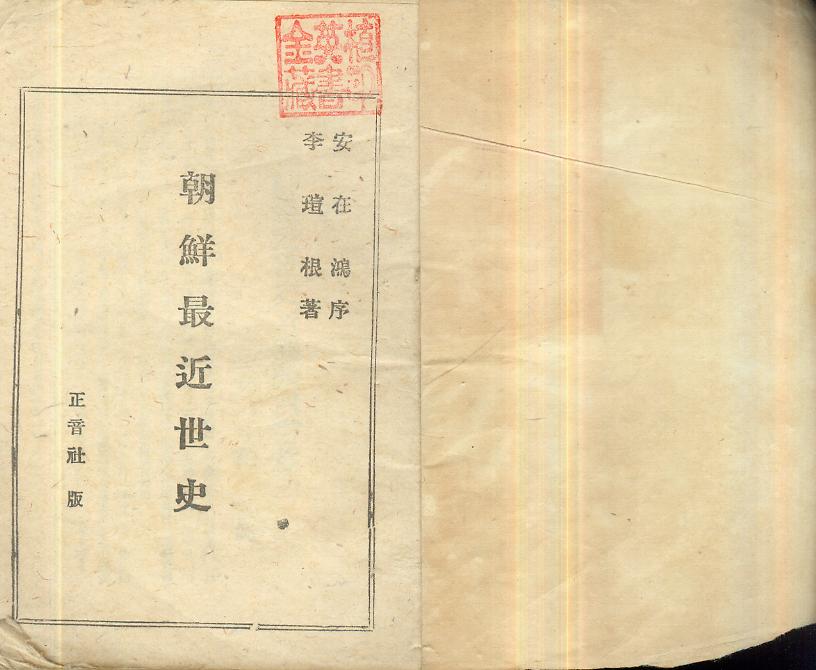 金英植
藏書印
安在鴻序
李瑄根著
朝鮮最近世史
正音社版